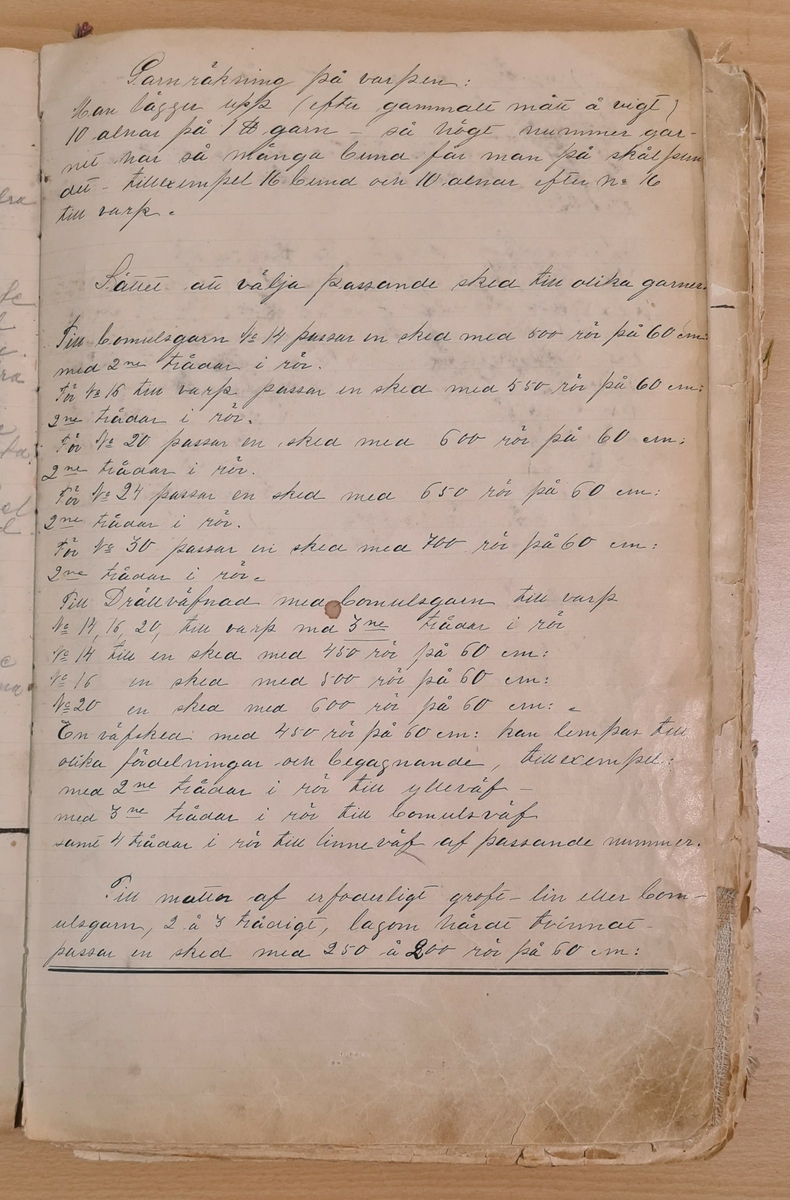 Garnräkning på varpen:
Man lägger upp (efter gammalt mått å vigt)
10 alnar på 1 ℔ garn – så högt nummer gar-
net har så många bund får man på skålpun
det – tillexempel 16 bund och 10 alnar efter No 16
till varp.
Sättet att välja passande sked till olika garner.
Till bomulsgarn No 14 passar en sked med 500 rör på 60 cm:
med 2ne trådar i rör.
För No 16 till varp passar en sked med 550 rör på 60 cm:
2ne trådar i rör.
För No 20 passar en sked med 600 rör på 60 cm:
2ne trådar i rör.
För No 24 passar en sked med 650 rör på 60 cm:
2ne trådar i rör.
För No 30 passar en sked med 700 rör på 60 cm:
2ne trådar i rör.
Till Drällväfnad med bomulsgarn till varp
No 14, 16, 20, till varp md 3ne trådar i rör
No 14 till en sked med 450 rör på 60 cm:
No 16 en sked med 500 rör på 60 cm:
No 20 en sked med 600 rör på 60 cm:
En väfsked med 450 rör på 60 cm: kan lempas till
olika fördelningar och begagnande, tillexempel:
med 2ne trådar i rör till ylleväf –
med 3ne trådar i rör till bomulsväf
samt 4 trådar i rör till linneväf af passande nummer.
Till mattor af erfoderligt groft – lin eller bom-
ulsgarn, 2 à 3 trådigt, lagom hårdt tvinnat –
passar en sked med 250 à 200 rör på 60 cm: